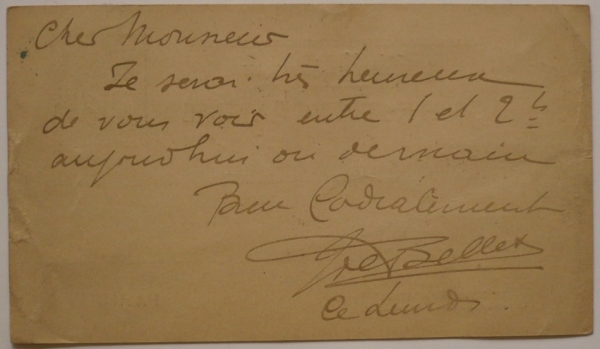 Cher Monsieur
Je serai très heureux
de vous voir entre 1 et 2h
aujourd'hui ou demain
Bien Cordialement
Ce Lundi.